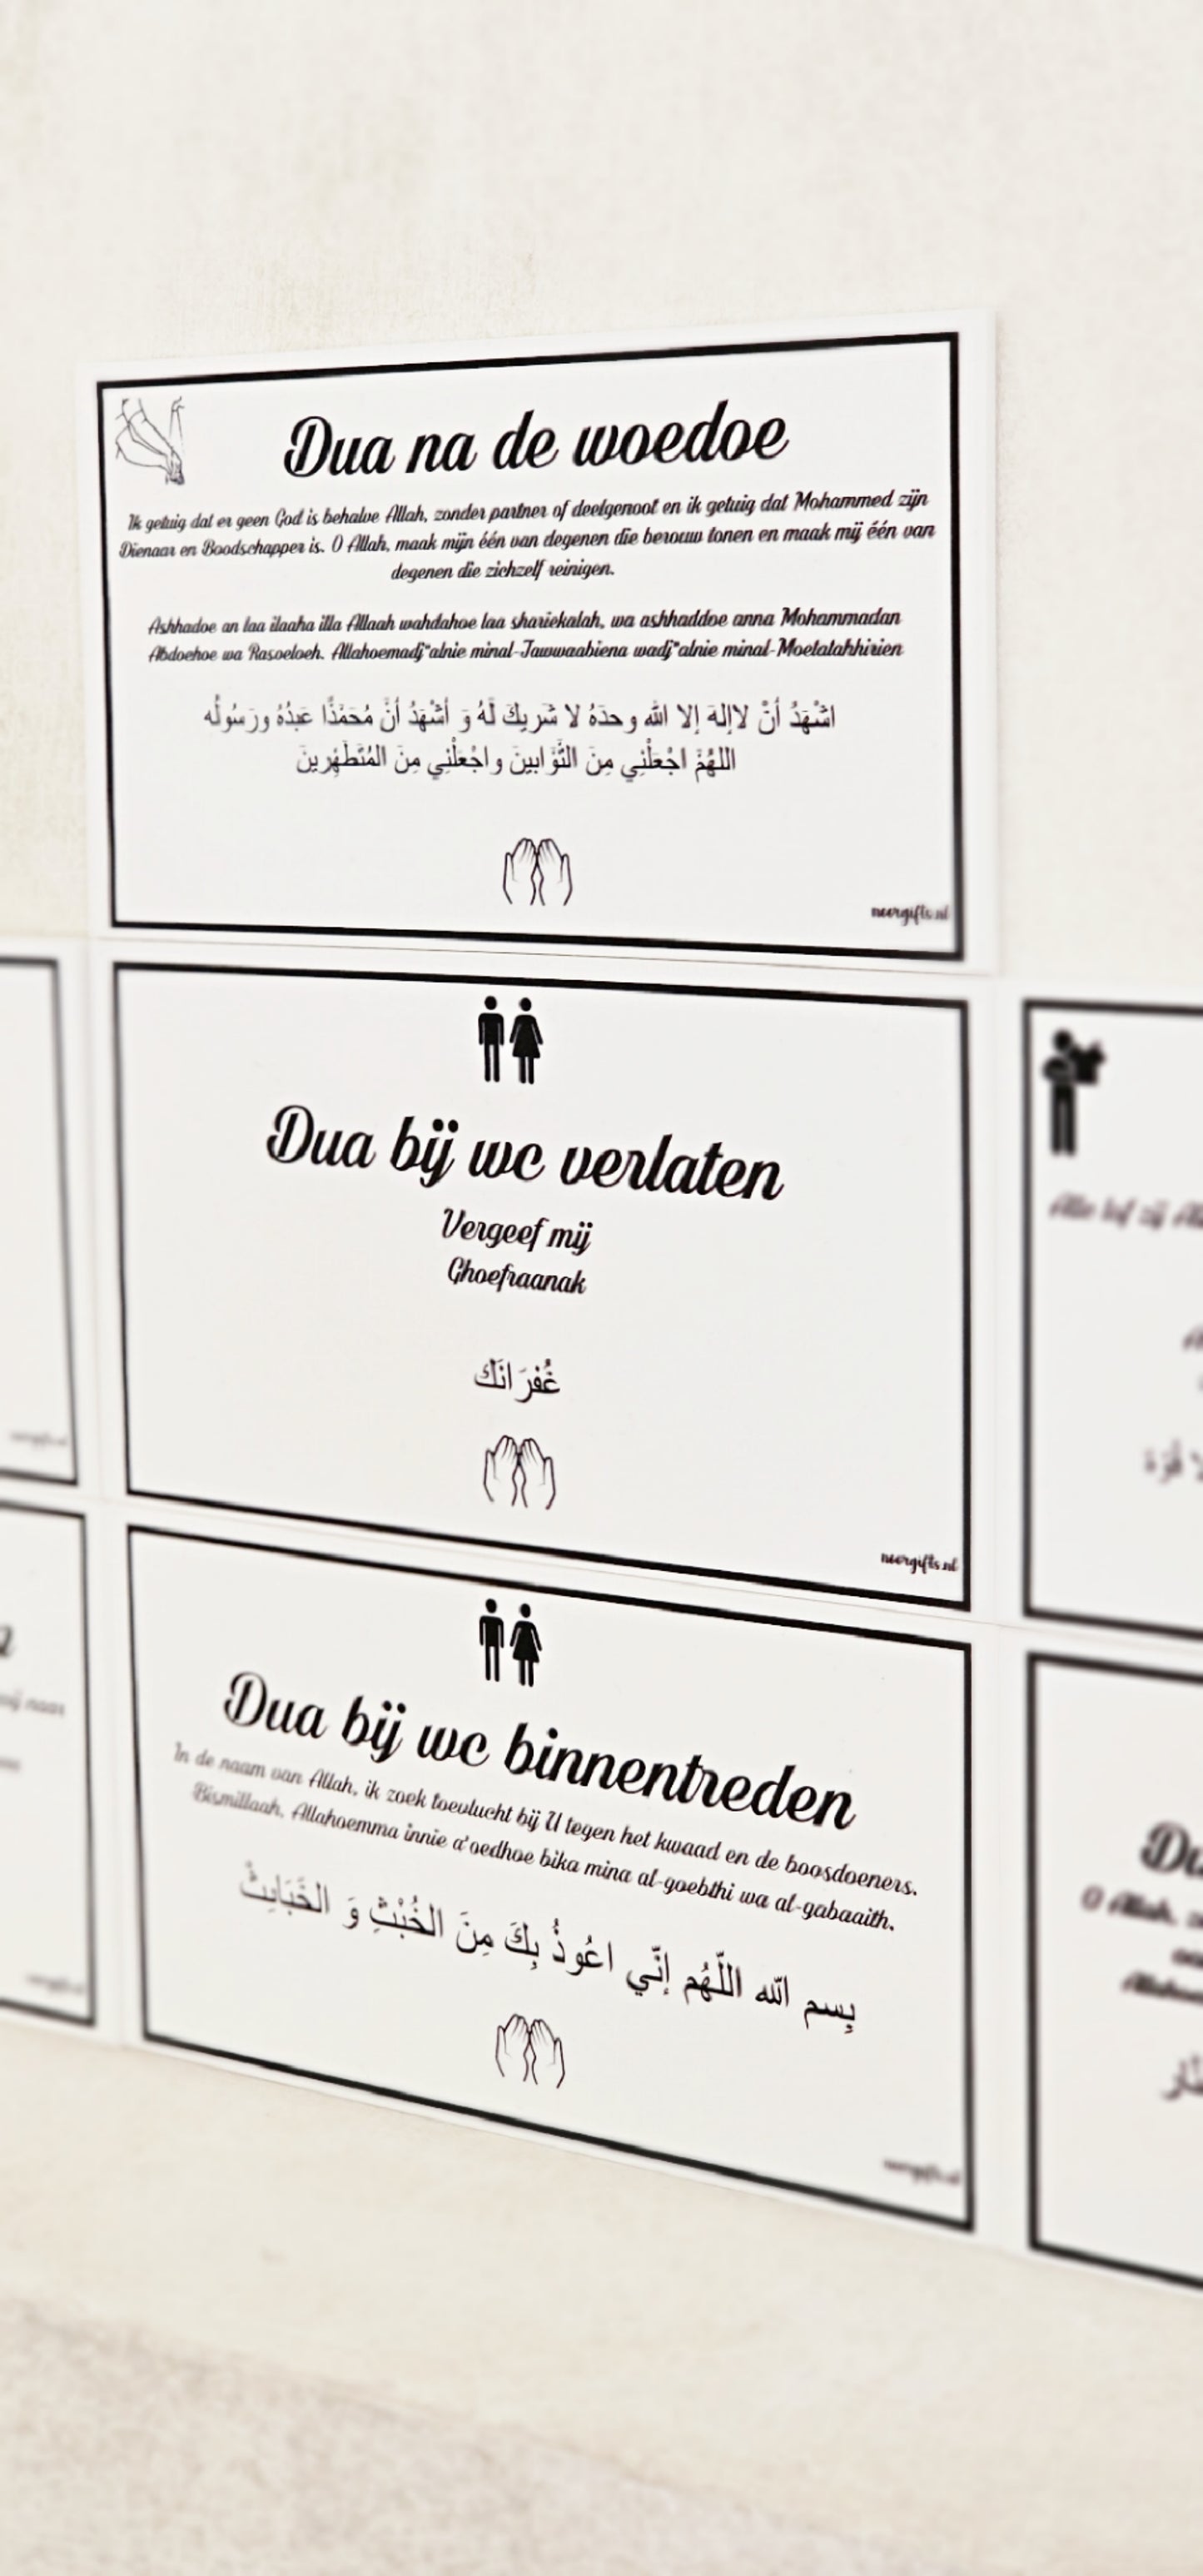 Dua na de woedoe
Ik getuig dat er geen God is behalve Allah, zonder partner of deelgenoot en ik getuig dat Mohammed zijn
Dienaar en Boodschapper is. O Allah, maak mijn één van degenen die berouw tonen en maak mij één van
degenen die zichzelf reinigen.
Ashhadoe an laa ilaaha illa Allaah wahdahoe laa shariekalah, wa ashhaddoe anna Mohammadan
Abdoehoe wa Rasoeloeh. Allahoemadj"alnie minal-Tawwaabiena wadj"alnie minal-Moetatahhirien
اشْهَدُ أنْ لاإلهَ إلا الله وحدَهُ لا شَريكَ لَهُ وَ أشْهَدُ أنَّ مُحَمَّدًا عَبدُهُ ورَسُولُه
اللهُمَّ اجْعَلْنِي مِنَ التَّوَّابينَ واجْعَلْنِي مِنَ المُتَطَهِّرينَ
noorgifts.nl
Dua bij wc verlaten
Vergeef mij
Ghoefraanak
غُفرَانَك
noorgifts.nl
Dua bij wc binnentreden
In de naam van Allah, ik zoek toevlucht bij U tegen het kwaad en de boosdoeners.
Bismillaah, Allahoemma innie a'oedhoe bika mina al-goebthi wa al-gabaaith.
بِسم الله اللّهُم إنّي اعُوذُ بِكَ مِنَ الخُبْثِ وَ الخَبَايِثْ
noorgifts.nl
Alle lof zij
O Allah,